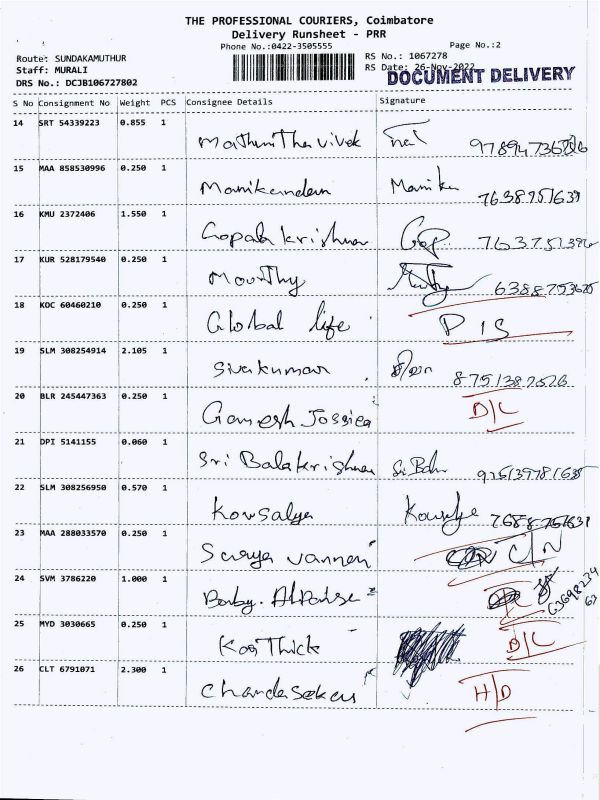 THE PROFESSIONAL COURIERS, Coimbatore
Delivery Runsheet - PRR
Phone No.:0422-3505555
Page No.:2
Route: SUNDAKAMUTHUR
RS No.: 1067278
Staff: MURALI
RS Date: 26-Nov-2022
DOCUMENT DELIVERY
DRS No.: DCJB106727802
S No Consignment No Weight PCS Consignee Details Signature
14 SRT 54339223 0.855 1
Mathunitha vivek
15 MAA 858530996 0.250 1
Manikandan Manika
16 KMU 2372406 1.550 1
Gopala krishnan Gop
17 KUR 528179540 0.250 1
Moorthy
18 KOC 60460210 0.250 1
Global life D/S
19 SLM 308254914 2.105 1
Sivakumar
20 BLR 245447363 0.250 1
Ganesh Jossica D/C
21 DPI 5141155 0.060 1
Sri Balakrishnan
22 SLM 308256950 0.570 1
Kowsalya
23 MAA 288033570 0.250 1
Surya vannan C/N
24 SVM 3786220 1.000 1
25 MYD 3030665 0.250 1
Karthick D/C
26 CLT 6791071 2.300 1
Chandasekar H/D